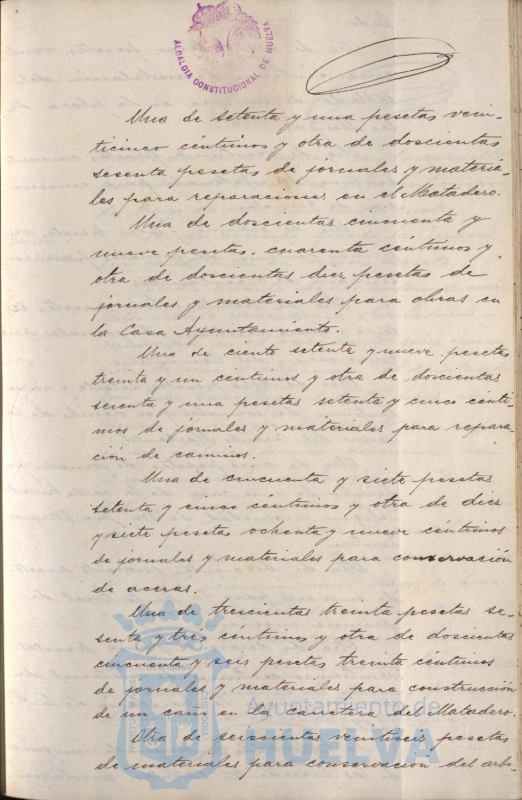 ALCALDIA CONSTITUCIONAL DE HUELVA
Una de setenta y una pesetas vein-
ticinco céntimos y otra de doscientas
sesenta pesetas de jornales y materia-
les para reparaciones en el Matadero.
Una de doscientas cincuenta y
nueve pesetas, cuarenta céntimos y
otra de doscientas diez pesetas de
jornales y materiales para obras en
la Casa Ayuntamiento.
Una de ciento setenta y nueve pesetas
treinta y un céntimos y otra de doscientas
sesenta y una pesetas setenta y cinco cénti-
mos de jornales y materiales para repara-
ción de caminos.
Una de cincuenta y siete pesetas
setenta y cinco céntimos y otra de diez
y siete pesetas ochenta y nueve céntimos
de jornales y materiales para conservación
de aceras.
Una de trescientas treinta pesetas se-
senta y tres céntimos y otra de doscientas
cincuenta y seis pesetas treinta céntimos
de jornales y materiales para construcción
de un caño en la carretera del Matadero.
Otra de seiscientas veintiseis pesetas
de materiales para conservación del arbo-
Ayuntamiento de
HUELVA